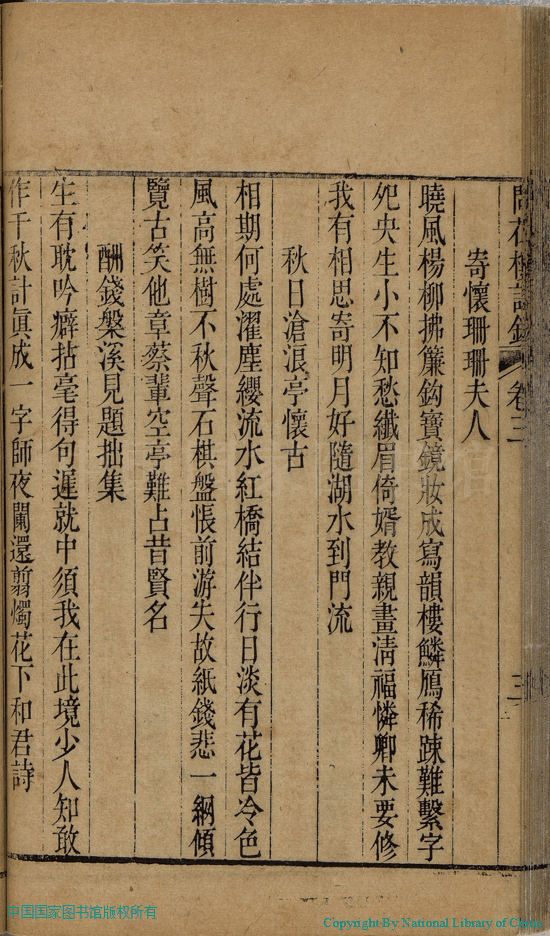 問花樓詩鈔 卷三 三
寄懷珊珊夫人
曉風楊柳拂簾鈎寶鏡妝成寫韻樓鱗鴈稀踈難繫字
夗央生小不知愁纖眉倚婿教親畫淸福憐卿未要修
我有相思寄明月好隨湖水到門流
秋日滄浪亭懷古
相期何處濯塵纓流水紅橋結伴行日淡有花皆冷色
風高無樹不秋聲石棋盤悵前游失故紙錢悲一網傾
覽古笑他章蔡輩空亭難占昔賢名
酬錢槃溪見題拙集
生有耽吟癖拈毫得句遲就中須我在此境少人知敢
作千秋計眞成一字師夜闌還翦燭花下和君詩
中国国家图书馆版权所有
Copyright By National Library of China